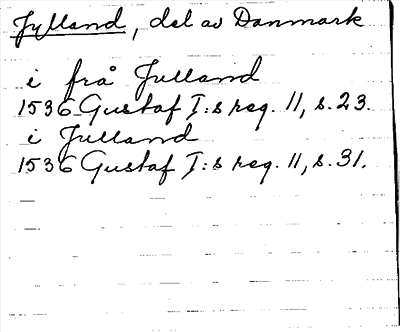 Jylland, del av Danmark
i frå Julland
1536 Gustaf I:s reg. 11, s. 23.
i Jylland
1536 Gustaf I:s reg. 11, s. 31.